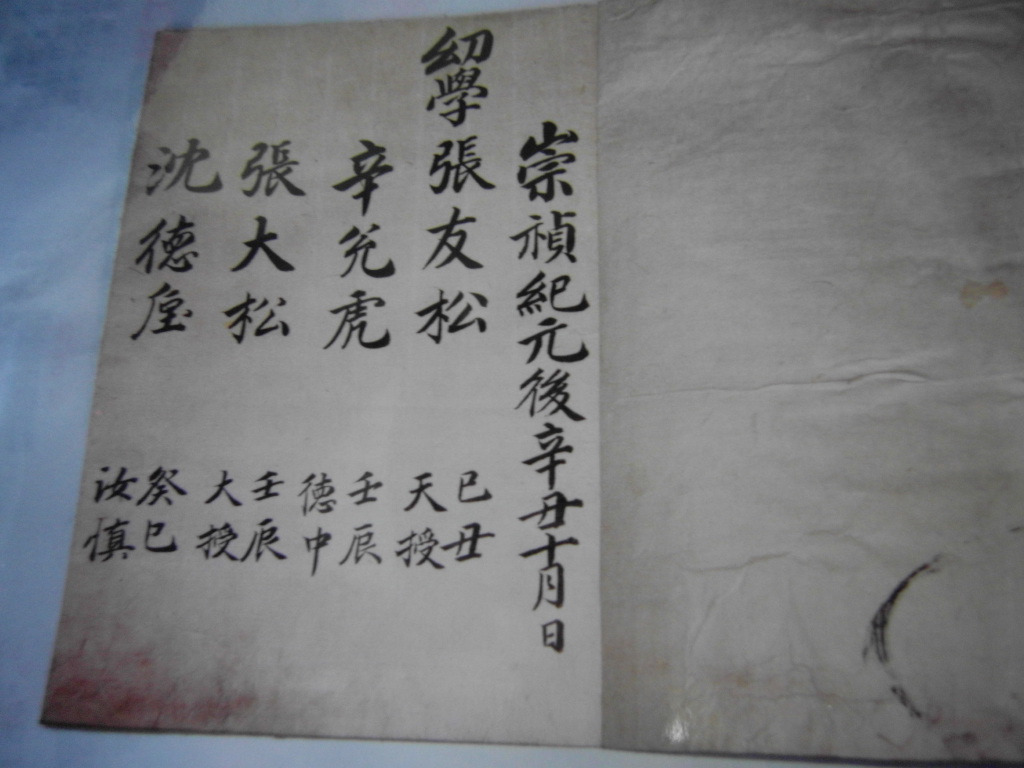 崇禎紀元後辛丑十月日
幼學張友松
己丑
天授
辛兊虎
壬辰
徳中
張大松
壬辰
大授
沈徳
癸巳
汝慎